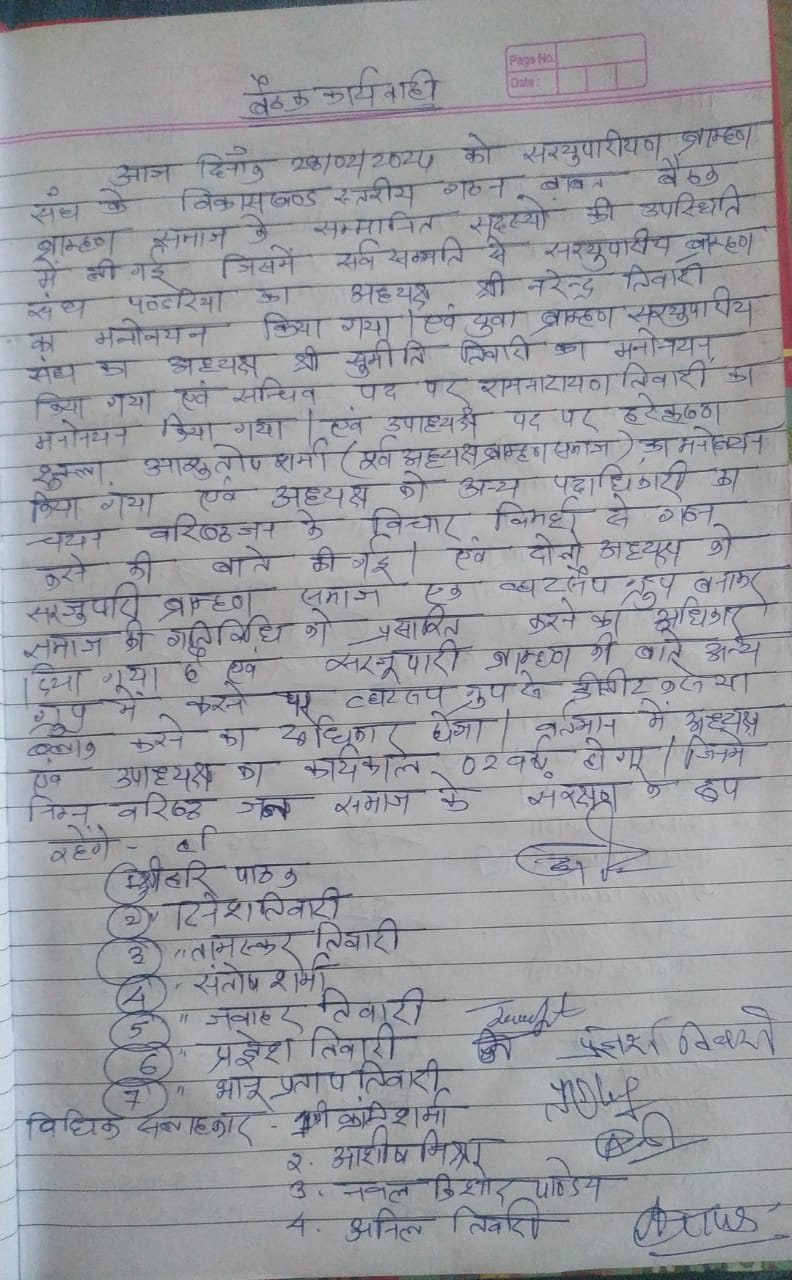 Page No.
Date :
बैठक कार्यवाही
आज दिनाँक को सरयुपारीयण ब्राम्हण
संघ के विकासखण्ड स्तरीय गठन बाबत बैठक
ब्राम्हण समाज के सम्मानित सदस्यों की उपस्थिति
में ली गई जिसमें सर्व सम्मति से सरयुपारीय ब्राम्हण
संघ पण्डरिया का अध्यक्ष श्री नरेन्द्र तिवारी
का मनोनयन किया गया। एवं युवा ब्राम्हण सरयुपारीय
संघ का अध्यक्ष श्री सुमीत तिवारी का मनोनयन
किया गया एवं सचिव पद पर रामनारायण तिवारी का
मनोनयन किया गया। एवं उपाध्यक्ष पद पर हरेकृष्ण
शुक्ला, आशुतोष शर्मा (पूर्व अध्यक्ष ब्राम्हण समाज) का मनोनयन
किया गया एवं अध्यक्ष को अन्य पदाधिकारी का
चयन वरिष्ठजन के विचार विमर्श से गठन
करने की बाते की गई। एवं दोनो अध्यक्ष को
सरजुपारी ब्राम्हण समाज एक व्हाटसैप ग्रुप बनाकर
समाज की गतिविधि को प्रसारित करने का अधिकार
दिया गया है एवं सरजूपारी ब्राम्हण की बाते अन्य
ग्रुप में करने पर व्हाटसप ग्रुप से या
ब्लाक करने का अधिकार होगा। वर्तमान में अध्यक्ष
एवं उपाध्यक्ष का कार्यकाल 02 वर्ष होगा। जिनमे
निम्न वरिष्ठ जन समाज के संरक्षक के रूप
रहेंगे -
1 श्री हरि पाठक
2 " दिनेश तिवारी
3 " तामस्कर तिवारी
4 " संतोष शर्मा
5 " जवाहर तिवारी
6 " प्रज्ञेश तिवारी
7 " भानू प्रताप तिवारी
विधिक सलाहकार - 1. श्री शर्मा
2. आशीष मिश्रा
3. नवल किशोर पाण्डेय
4. अनिल तिवारी